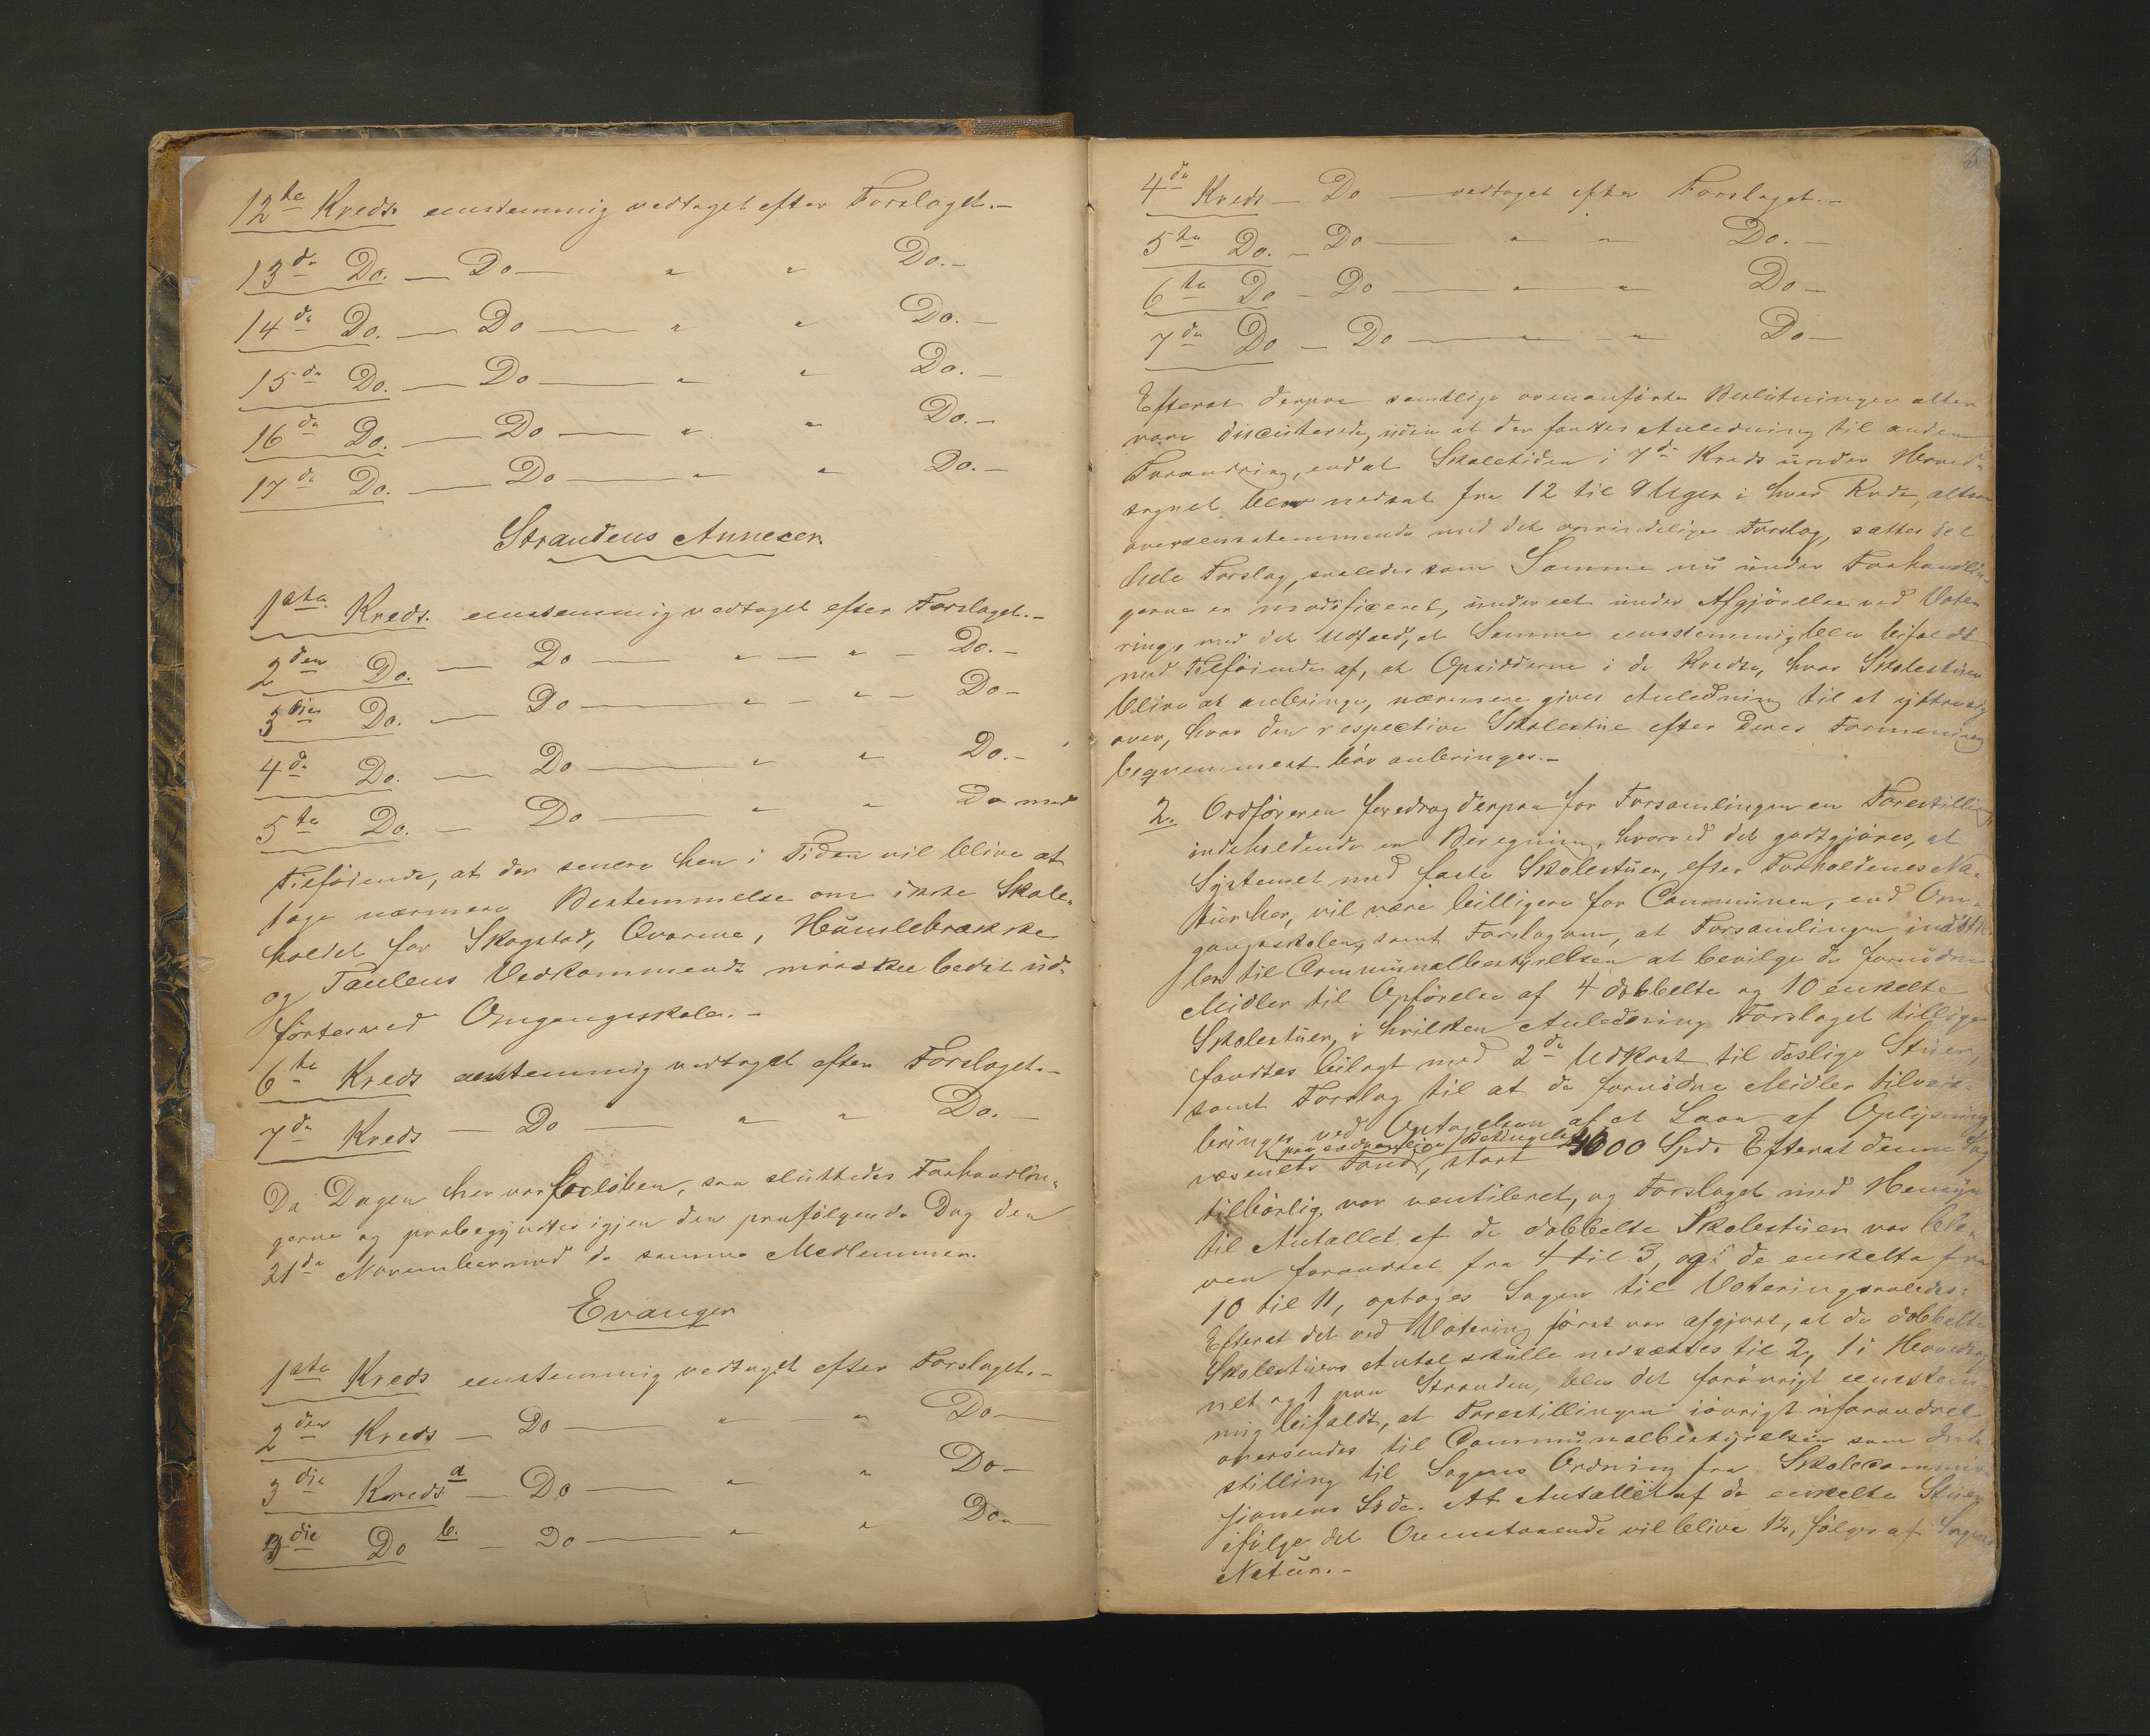 12te Kreds eenstemmig vedtaget efter Forslaget.-
13de Do. - Do - " " Do.-
14de Do. - Do - " " Do.-
15de Do. - Do - " " Do.-
16de Do. - Do - " " Do.-
17de Do. - Do - " " Do.-
Strandens Annexer.
1ste Kreds. eenstemmig vedtaget efter Forslaget.-
2den Do. - Do - " - " - Do.-
3die Do. - Do - " - " - Do-
4de Do. - Do - " " Do.-
5te Do. - Do - " " Do med
Tilføiende, at der senere hen i Tiden vil blive at
tage nærmere Bestemmelse om ikke Skole-
holdet for Skogstad, Qvarme, Hünslebrække
og Taulens Vedkommende maaskee bedst üd-
førtes ved Omgangsskole.-
6te Kreds eenstemmig vedtaget efter Forslaget.-
7de Kreds - Do - " " Do.-
Da Dagen her var forløben, saa sluttedes Forhandlin-
gerne og paabegyndtes igjen den paafølgende Dag den
21de November med de samme Medlemmer.
Evanger
1ste Kreds eenstemmig vedtaget efter Forslaget.-
2den Kreds - Do - " - " Do-
3die Kreds a - Do - " " Do-
3die Do b. - Do - " " Do-
3
4de Kreds - Do - vedtaget efter Forslaget.-
5te Do. - Do - " " Do.-
6te Do - Do - " " Do-
7de Do - Do - " - " Do-
Efterat derpaa samtlige ovenanførte Beslütninger atter
vare discüterede, üden at der fandtes Anledning til anden
Forandring, end at Skoletiden i 7de Kreds ünder Hoved-
sognet blev nedsat fra 12 til 9 Uger i hver Rode, altsaa
overeensstemmende med det oprindelige Forslag, sattes det
hele Forslag, saaledes som Samme nü ünder Forhandlin-
gerne er modificeret, ünder eet ünder Afgjørelse ved Vote-
ring, med det Udfald, at Samme eenstemmig blev bifaldt
med Tilføiende af, at Opsidderne i de Kredse, hvor Skolestuer
blive at anbringe, nærmere gives Anledning til at yttre sig
over, hvor den respective Skolestue efter Deres Formening
beqvemmest bør anbringes.-
2. Ordføreren foredrog derpaa for Forsamlingen en Forestilling,
indeholdende en Beregning, hvorved det godtgjøres, at
Systemet med faste Skolestüer, efter Forholdenes Na-
tür her, vil være billigere for Commünen, end Om-
gangsskolen, samt Forslag om, at Forsamlingen indstil-
ler til Commünalbestyrelsen at bevilge de fornødne
Midler til Opførelse af 4 dobbelte og 10 enkelte
Skolestüer, i hvilken Anledning Forslaget tillige
fandtes bilagt med 2de Udkast til deslige Stüer,
samt Forslag til at de fornødne Midler tilveie-
bringes ved Optagelsen af et Laan af Oplysnings-
paa sædvanlige Betingelser
væsenets Fond, stort 4000 Spd. Efterat denne Sag
tilbørlig var ventileret, og Forslaget med Hensyn
til Antallet af de dobbelte Skolestüer var ble-
ven forandret fra 4 til 3, og de enkelte fra
10 til 11, optoges Sagen til Votering saaledes:
Efterat det ved Votering først var afgjort, at de dobbelte
Skolestüers Antal skülle nedsættes til 2, 1 i Hovedsog-
net og 1 paa Stranden, blev det forøvrigt eenstem-
mig bifaldt, at Forestillingen iøvrigt üforandret
oversendes til Commünalbestyrelsen som Ind-
stilling til Sagens Ordning fra Skolecommis-
sionens Side. At Antallet af de enkelte Stüer
ifølge det Ovenstaaende vil blive 12, følger af Sagens
Natür.-